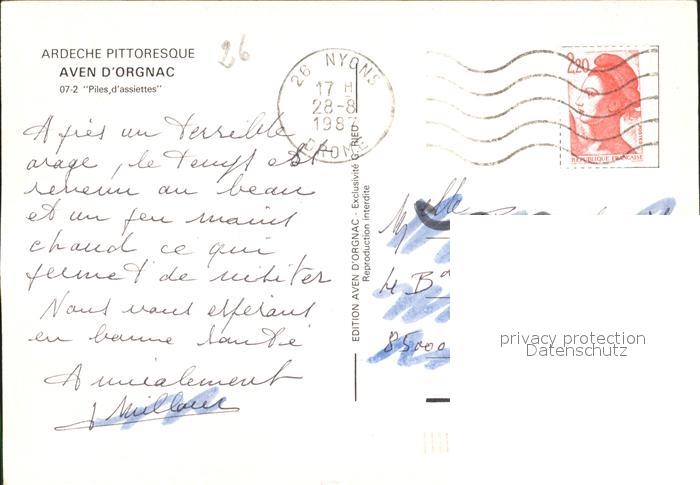 ARDECHE PITTORESQUE
AVEN D'ORGNAC
07-2 "Piles d'assiettes"
26
26 NYONS
17 H
28-8
1987
DROME
2,20
POSTES
REPUBLIQUE FRANÇAISE
Après un terrible
orage, le temps est
revenu au beau
et un peu moins
chaud ce qui
permet de visiter
Nous vous espérons
en bonne santé
Amicalement
EDITION AVEN D'ORGNAC - Exclusivité G. RIED
Reproduction interdite
Mlle
4 Bd
85000
privacy protection
Datenschutz